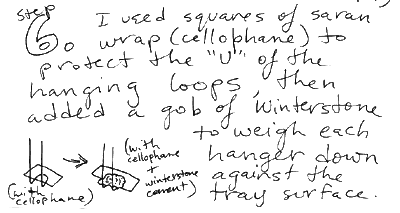 step
6. I used squares of saran
wrap (cellophane) to
protect the "U" of the
hanging loops, then
added a gob of Winterstone
to weigh each
hanger down
against the
tray surface.
(with
cellophane)
(with
cellophane
+
winterstone
cement)